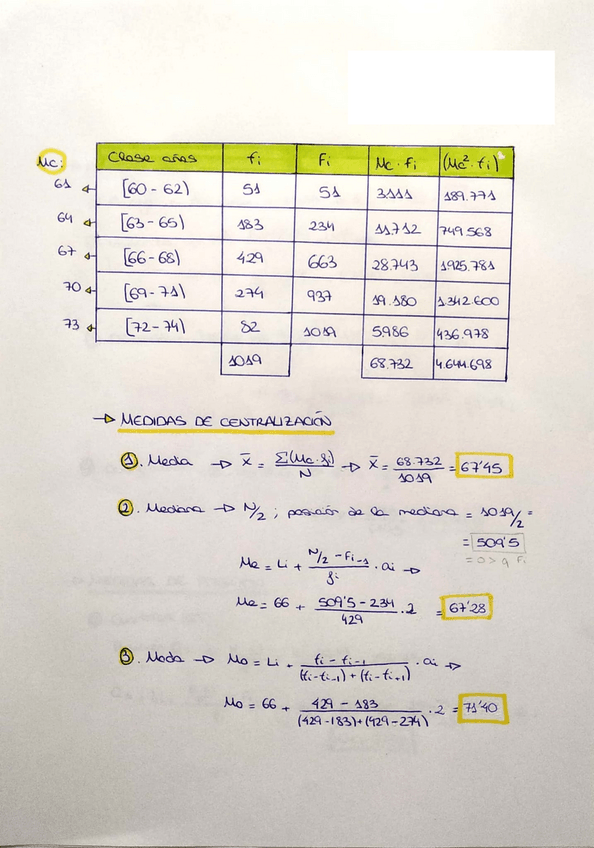 Mc: Clase años fi Fi Mc · fi (Mc² · fi)
61 [60 - 62) 51 51 3.111 189.771
64 [63 - 65) 183 234 11.712 749.568
67 [66 - 68) 429 663 28.743 1925.781
70 [69 - 71) 274 937 19.180 1.342.600
73 [72 - 74) 82 1019 5986 436.978
1019 68.732 4.644.698
→ MEDIDAS DE CENTRALIZACIÓN
1. Media → x̄ = Σ(Mc·fi)/N → x̄ = 68.732/1019 = 67'45
2. Mediana → N/2 ; posición de la mediana = 1019/2 =
= 509'5
= 0 > a Fi
Me = Li + (N/2 - Fi-1)/fi · ai →
Me = 66 + (509'5 - 234)/429 · 2 = 67'28
3. Moda → Mo = Li + (fi - fi-1)/((fi - fi-1) + (fi - fi+1)) · ai →
Mo = 66 + (429 - 183)/((429 - 183) + (429 - 274)) · 2 = 71'40